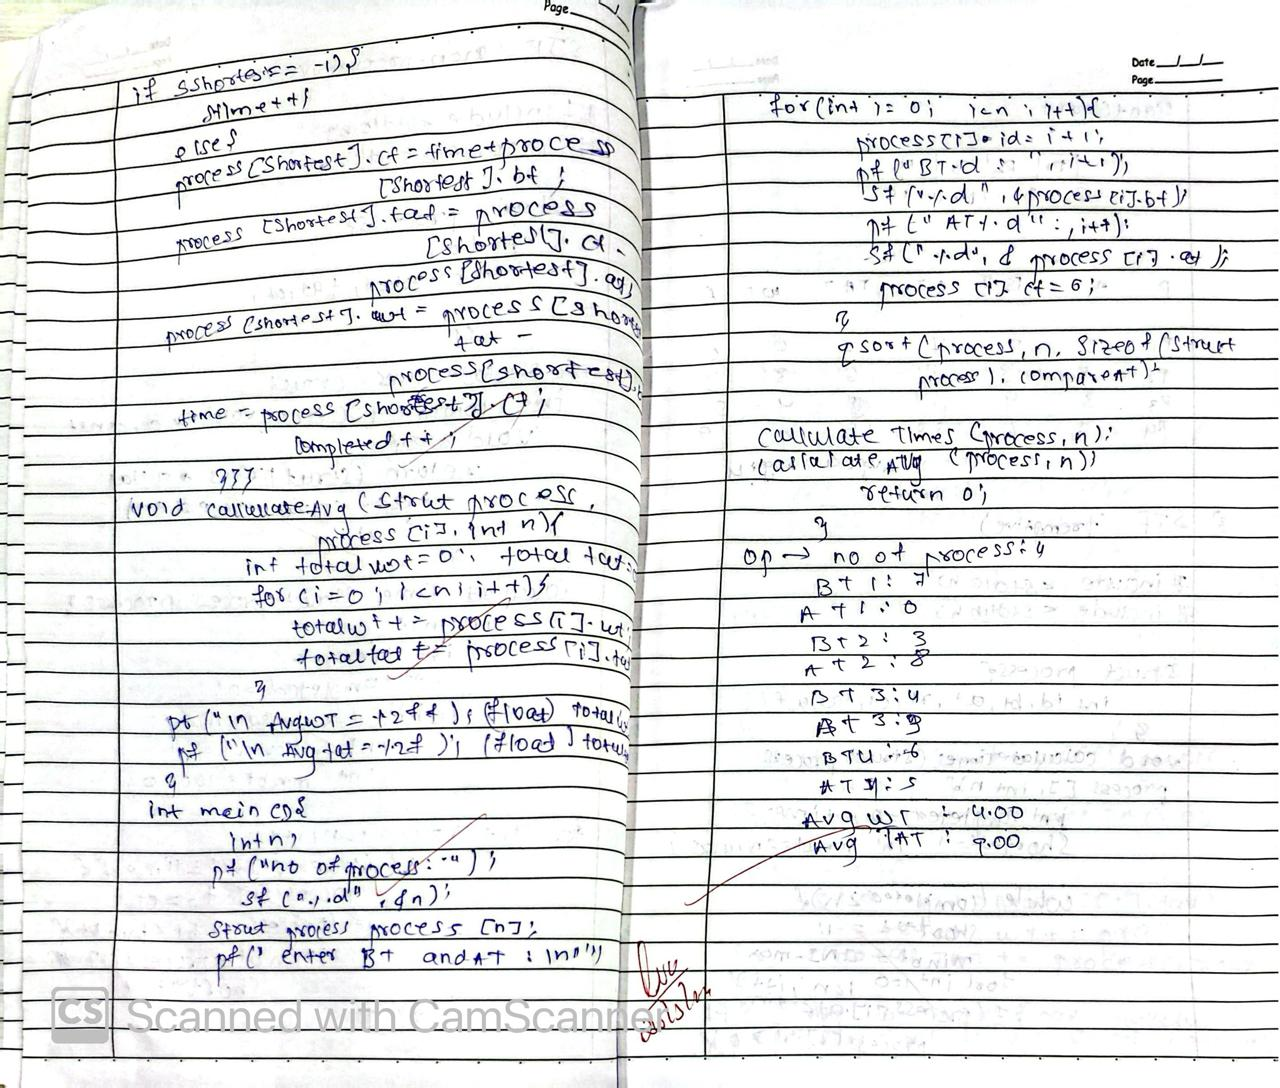 Page
if sshortest== -1){
time++;
else{
process[shortest].ct = time+process
[shortest].bt ;
process [shortest].tat = process
[shortest]. ct -
process[shortest]. at;
process [shortest]. wt = process [short
tat -
process[shortest].
time = process [shortest]. ct ;
completed ++ ;
}}}
void callulateAvg (strut process
process [i], int n){
int total wt = 0; total tat=
for (i=0 ; i<n; i++){
totalwt += process[i]. wt
totaltat += process[i]. ta
}
pf ("\n AvgWT = %2ff ); (float) total
pf ("\n Avg tat = %2f ); (float) total
}
int main (){
int n;
pf ("no of process: ");
sf ("%d" , &n);
strut process process [n];
pf (" enter BT and AT : \n")
Date
Page
for (int i= 0; i<n ; i++){
process[i]. id= i+1;
pf ("BT %d : " , i+1);
sf ("%d ", &process[i].bt);
pf (" AT %d " : , i++);
sf (" %d", & process [i] .at );
process [i]. ct = 0;
}
qsort (process, n, sizeof (struct
process), compareAT);
callulate Times (process, n);
callulate Avg (process, n);
return 0;
}
op → no of process: 4
BT 1: 7
AT 1: 0
BT 2: 3
AT 2: 8
BT 3: 4
AT 3: 9
BT 4: 6
AT 4: 5
Avg WT : 4.00
Avg TAT : 9.00
CS Scanned with CamScanner